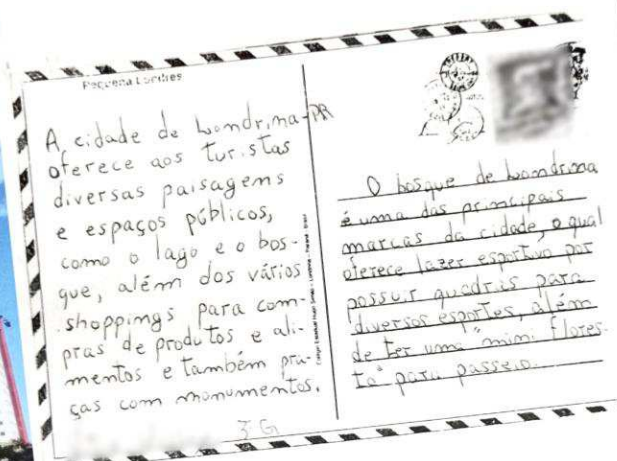 Pequena Londres
A cidade de Londrina-PR
oferece aos turistas
diversas paisagens
e espaços públicos,
como o lago e o bos-
que, além dos vários
shoppings para com-
pras de produtos e ali-
mentos e também pra-
ças com monumentos.
3G
O bosque de Londrina
é uma das principais
marcas da cidade, o qual
oferece lazer esportivo por
possuir quadras para
diversos esportes, além
de ter uma "mini flores-
ta" para passeio.